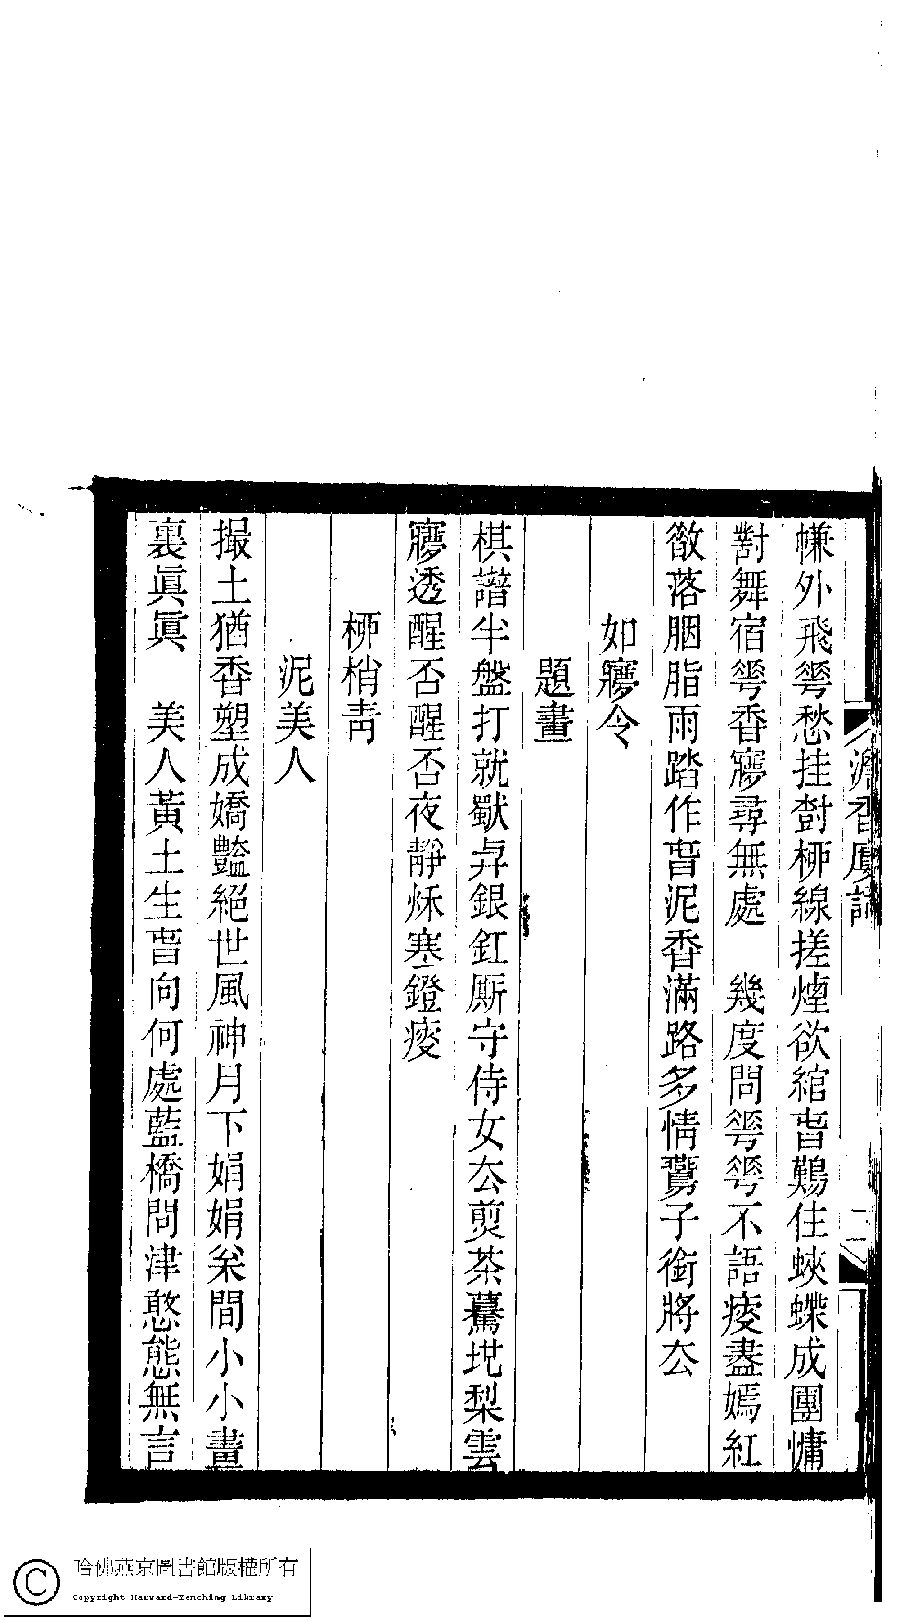 幨外飛䔢愁挂對桺線搓煙欲綰旾鷬住蛺蜨成團慵
對舞宿䔢香㝱尋無處　幾度問䔢䔢不語瘦盡嫣紅
斂落胭脂雨踏作旾泥香滿路多情鷰子銜將厺
如㝱令
題畫
棋譜半盤打就獸鼎銀釭厮守侍女厺煎茶驀地梨雲
㝱透醒否醒否夜靜秌寒鐙瘦
桺梢青
泥美人
撮土猶香塑成嬌豔絕世風神月下娟娟𥹭間小小畫
裏眞眞　美人黃土生旾向何處藍橋問津憨態無言
澹香廬詞
二
哈佛燕京圖書館版權所有
Copyright Harvard-Yenching Library